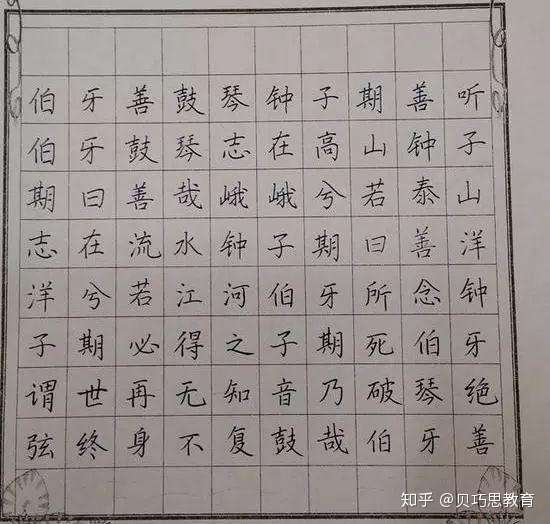 伯牙善鼓琴钟子期善听
伯牙鼓琴志在高山钟子
期曰善哉峨峨兮若泰山
志在流水钟子期曰善洋
洋兮若江河伯牙所念钟
子期必得之子期死伯牙
谓世再无知音乃破琴绝
弦终身不复鼓哉伯牙善
知乎 @贝巧思教育